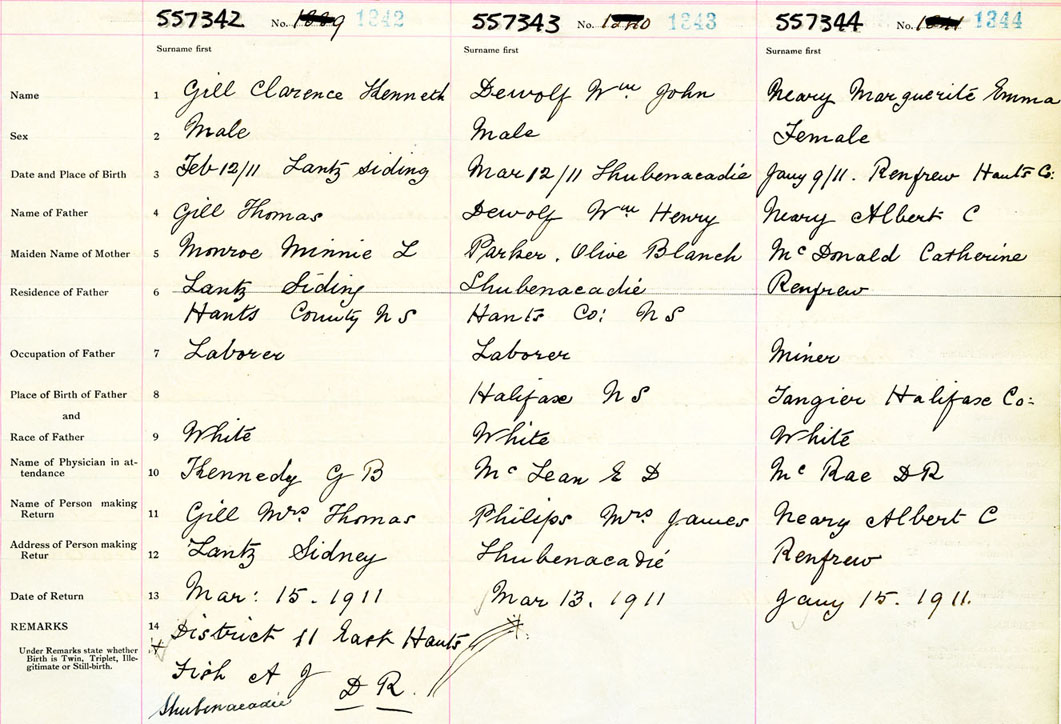 557342 No. 1342 557343 No. 1343 557344 No. 1344
Surname first Surname first Surname first
Name 1 Gill Clarence Kenneth Dewolf Wm John Neary Marguerite Emma
Sex 2 Male Male Female
Date and Place of Birth 3 Feb 12/11 Lantz siding Mar 12/11 Shubenacadie Jany 9/11. Renfrew Hants Co:
Name of Father 4 Gill Thomas Dewolf Wm Henry Neary Albert C
Maiden Name of Mother 5 Monroe Minnie L Parker. Olive Blanch McDonald Catherine
Residence of Father 6 Lantz Siding Shubenacadie Renfrew
Hants County N S Hants Co: N S
Occupation of Father 7 Laborer Laborer Miner
Place of Birth of Father 8 Halifax N S Tangier Halifax Co:
and
Race of Father 9 White White White
Name of Physician in at-
tendance 10 Kennedy G B McLean E D McRae D R
Name of Person making
Return 11 Gill Mrs. Thomas Philips Mrs James Neary Albert C
Address of Person making
Retur 12 Lantz Sidney Shubenacadie Renfrew
Date of Return 13 Mar: 15. 1911 Mar 13. 1911 Jany 15. 1911.
REMARKS 14 District 11 East Hants
Under Remarks state whether
Birth is Twin, Triplet, Ille-
gitimate or Still-birth.
Fish A J D R.
Shubenacadie